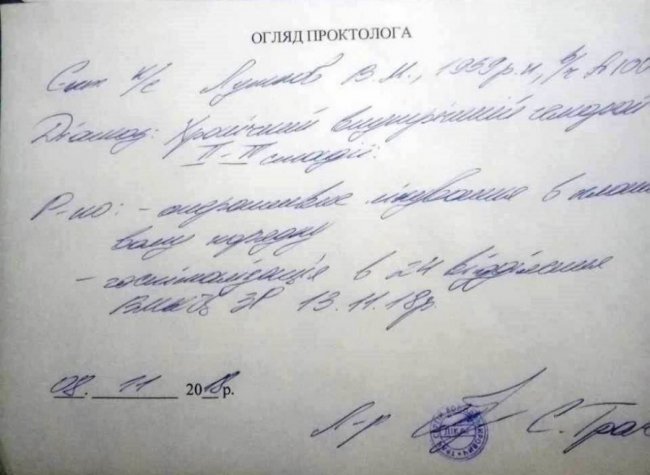 ОГЛЯД ПРОКТОЛОГА
С-нт к/с В.М., 1959 р.н, в/ч А100
Діагноз: Хронічний внутрішній геморой
II-III стадії.
Р-но: - оперативне лікування в плано-
вому порядку
- госпіталізація в 24 відділення
ВМКЦ ЗР 13.11.18р.
08. 11 2018р.
Л-р С.